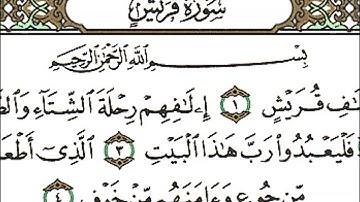 سُورَةُ قُرَيْشٍ
بِسْمِ ٱللَّهِ ٱلرَّحْمَٰنِ ٱلرَّحِيمِ
قُرَيْشٍ ١ إِۦلَٰفِهِمْ رِحْلَةَ ٱلشِّتَآءِ
فَلْيَعْبُدُوا۟ رَبَّ هَٰذَا ٱلْبَيْتِ ٣ ٱلَّذِىٓ
مِّن جُوعٍ وَءَامَنَهُم مِّنْ خَوْفٍۭ ٤